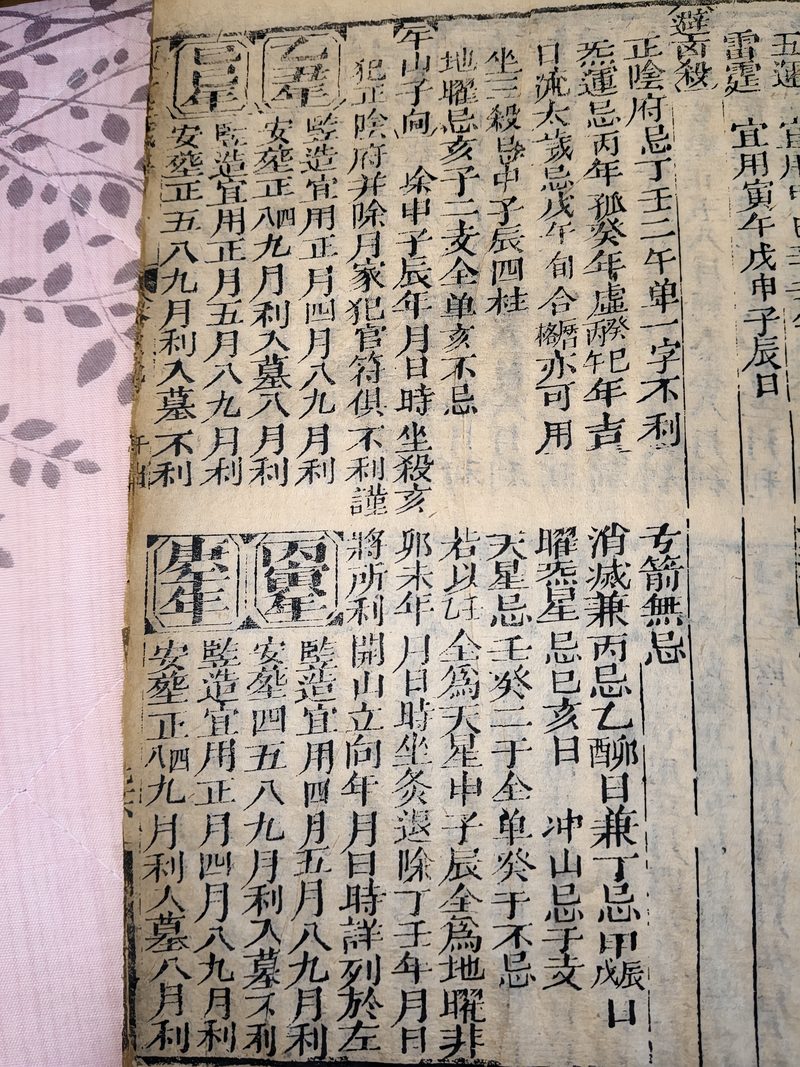 五運 宜用
雷霆 宜用寅午戌申子辰日
避凶殺
正陰府忌丁壬二午单一字不利 方箭無忌
炁運忌丙年孤癸年虛癸巳丙午年吉 消滅兼丙忌乙卯酉日兼丁忌甲辰戊日
日流太歲忌戊午旬合曆格亦可用 曜炁星忌巳亥日 冲山忌子支
坐三殺忌申子辰四柱 天星忌壬癸二干全单癸干不忌
地曜忌亥子二支全单亥不忌 若以全為天星申子辰全為地曜非
午山子向 除申子辰年月日時坐殺亥卯未年月日時坐灸退除丁壬年月日
犯正陰府并除月家犯官符俱不利謹將所利開山立向年月日時詳列於左
乙丑年
豎造宜用正月四月八九月利
安塟正四八九月利入墓八月利
丙寅年
豎造宜用四月五月八九月利
安塟四五八九月利入墓不利
己巳年
豎造宜用正月五月八九月利
安塟正五八九月利入墓不利
庚午年
豎造宜用正月四月八九月利
安塟正四八九月利入墓八月利